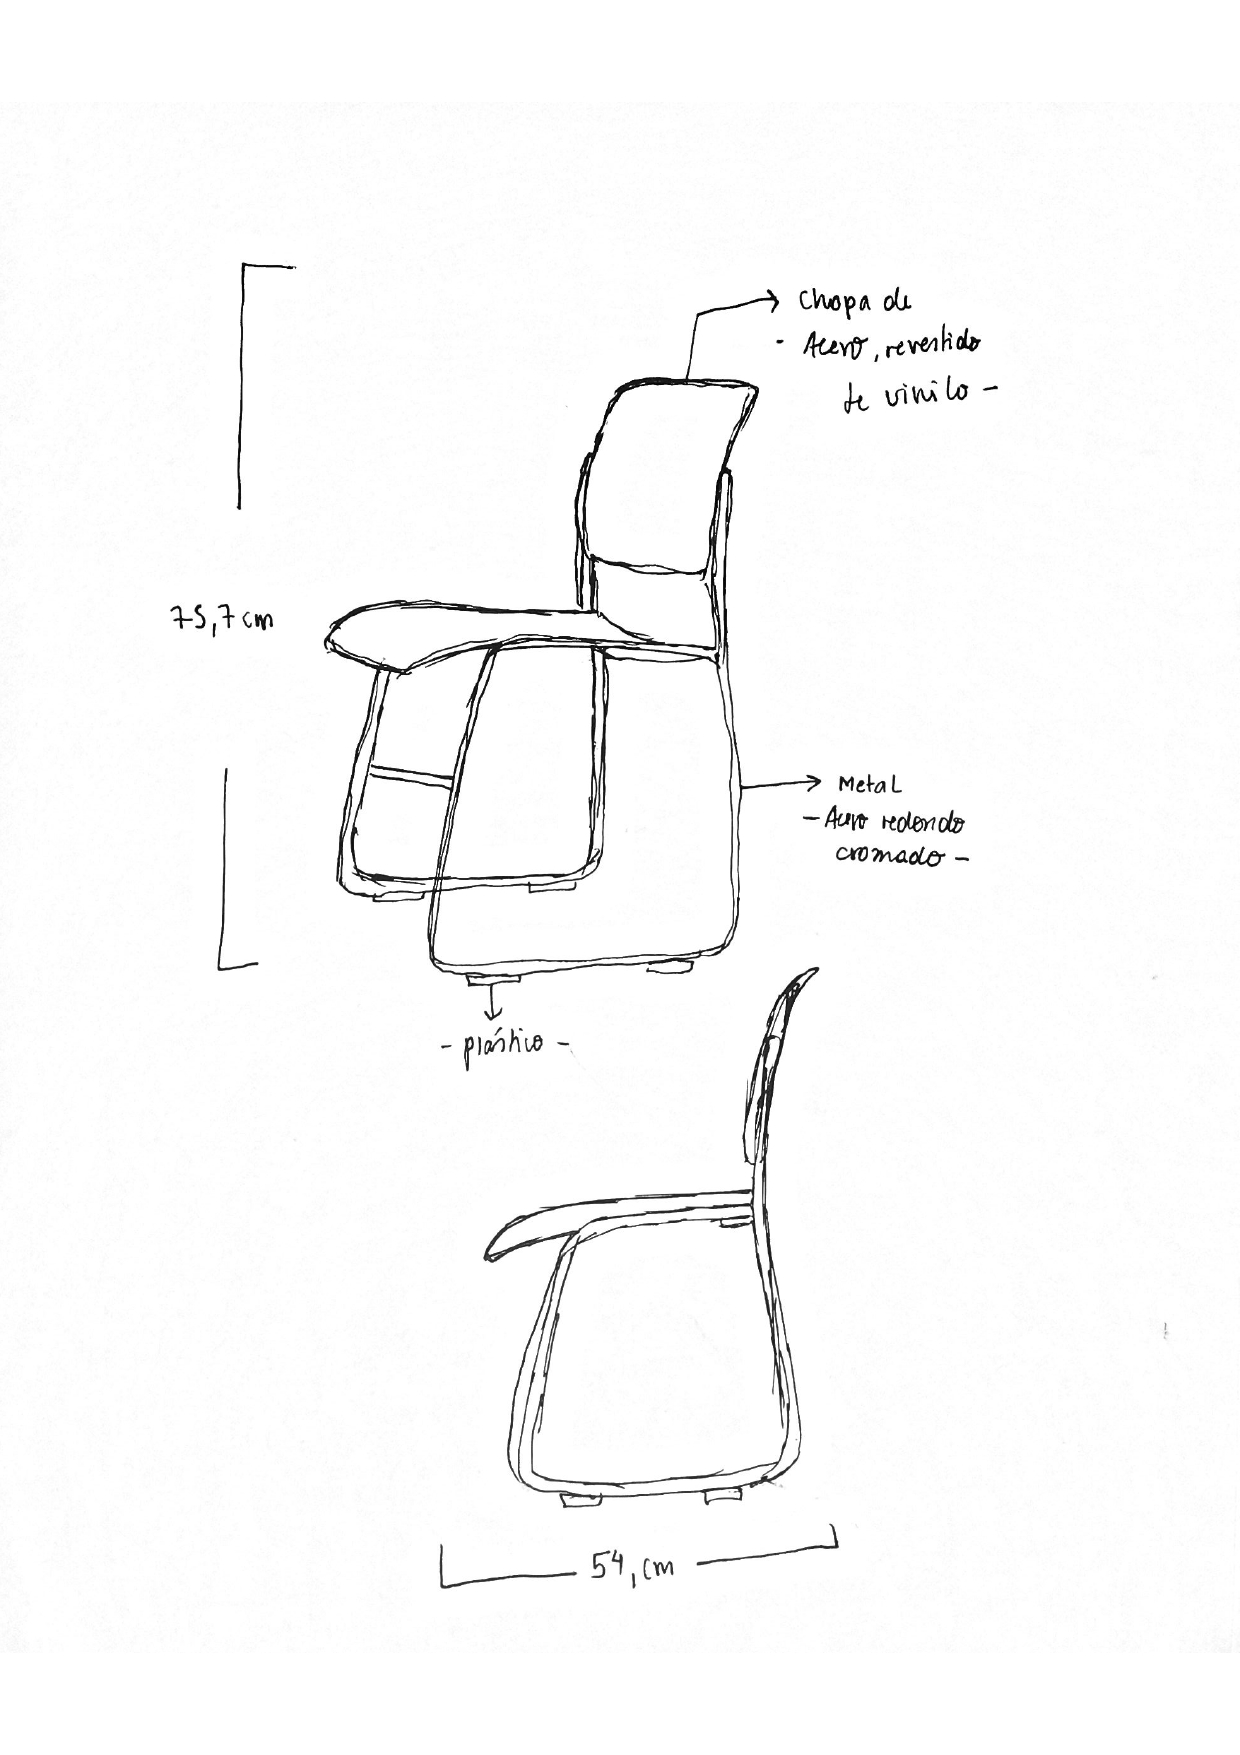 Chapa de
- Acero, revestido
de vinilo -
75,7 cm
Metal
- Acero redondo
cromado -
- plástico -
54, cm